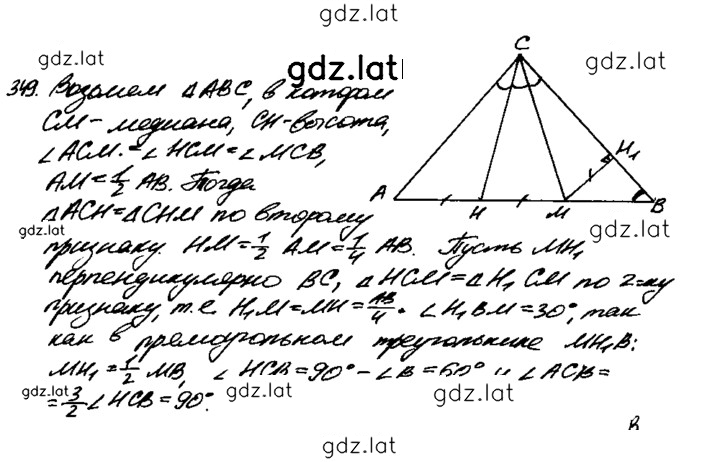 gdz.lat
gdz.lat
gdz.lat
gdz.lat
349. Возьмем △ABC, в котором
CM - медиана, CH - высота,
∠ACM. = ∠HCM = ∠MCB,
AM = 1/2 AB. Тогда
△ACH = △CHM по второму
gdz.lat
gdz.lat
признаку. HM = 1/2 AM = 1/4 AB. Пусть MH₁
перпендикулярно BC, △HCM = △H₁CM по 2-му
признаку, т.е. H₁M = MH = AB/4. ∠H₁BM = 30°, так
как в прямоугольном треугольнике MH₁B:
MH₁ = 1/2 MB, ∠HCB = 90° - ∠B = 60° и ∠ACB =
= 3/2 ∠HCB = 90°.
gdz.lat
gdz.lat
gdz.lat
gdz.lat
C
H₁
A
H
M
B
B